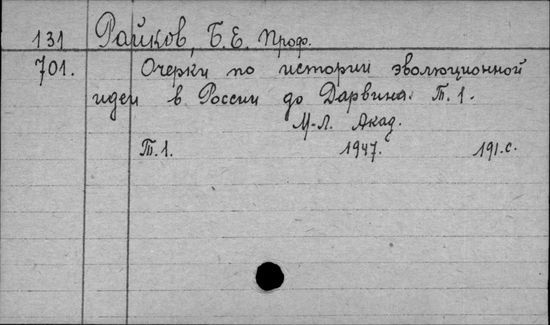 131 Райков, Б.Е. Проф.
701. Очерки по истории эволюционной
идеи в России до Дарвина. Т.1.
М-Л. Акад.
Т.1. 1947. 191.с.